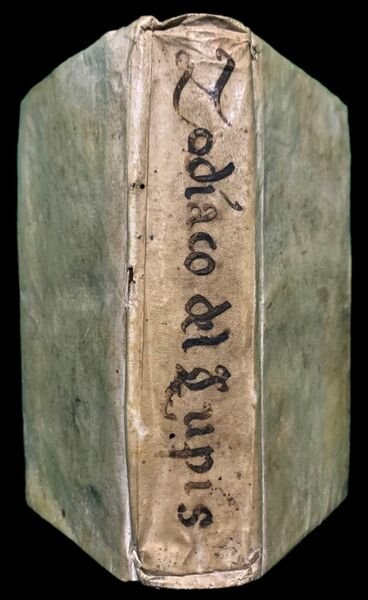 Zodíaco del Lupis